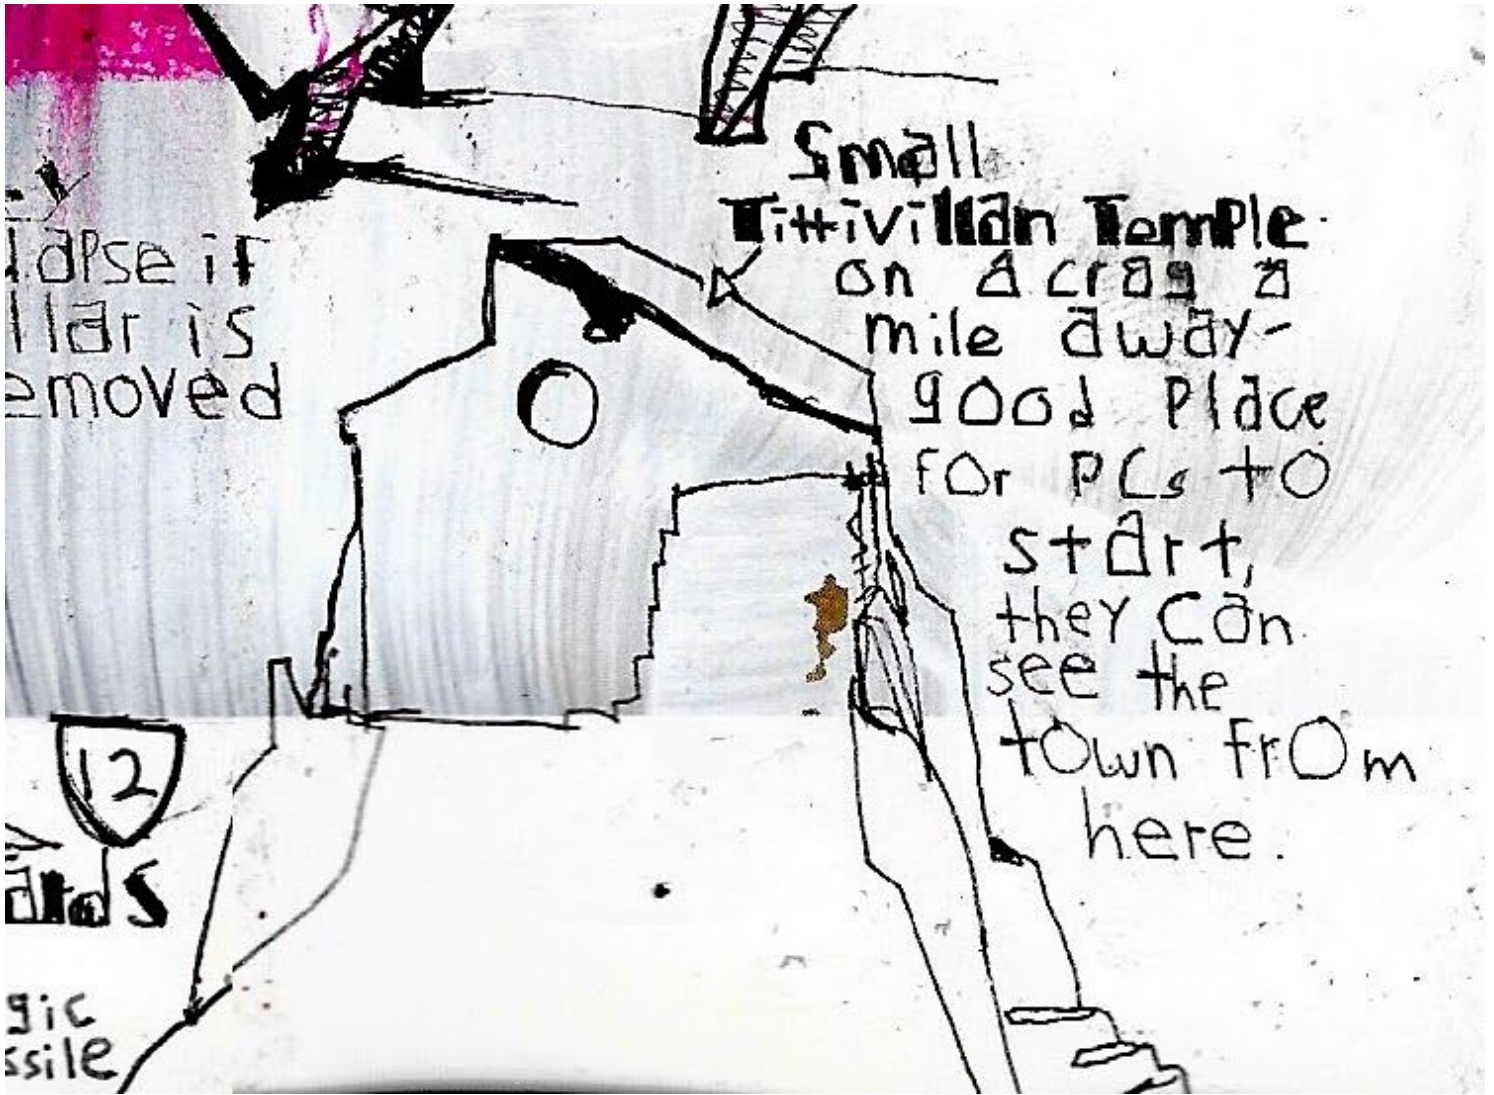 lapse if
llar is
emoved
Small
Tittivillan Temple
on a crag a
mile away-
good place
for PCs to
start,
they can
see the
town from
here.
12
ards
gic
ssile